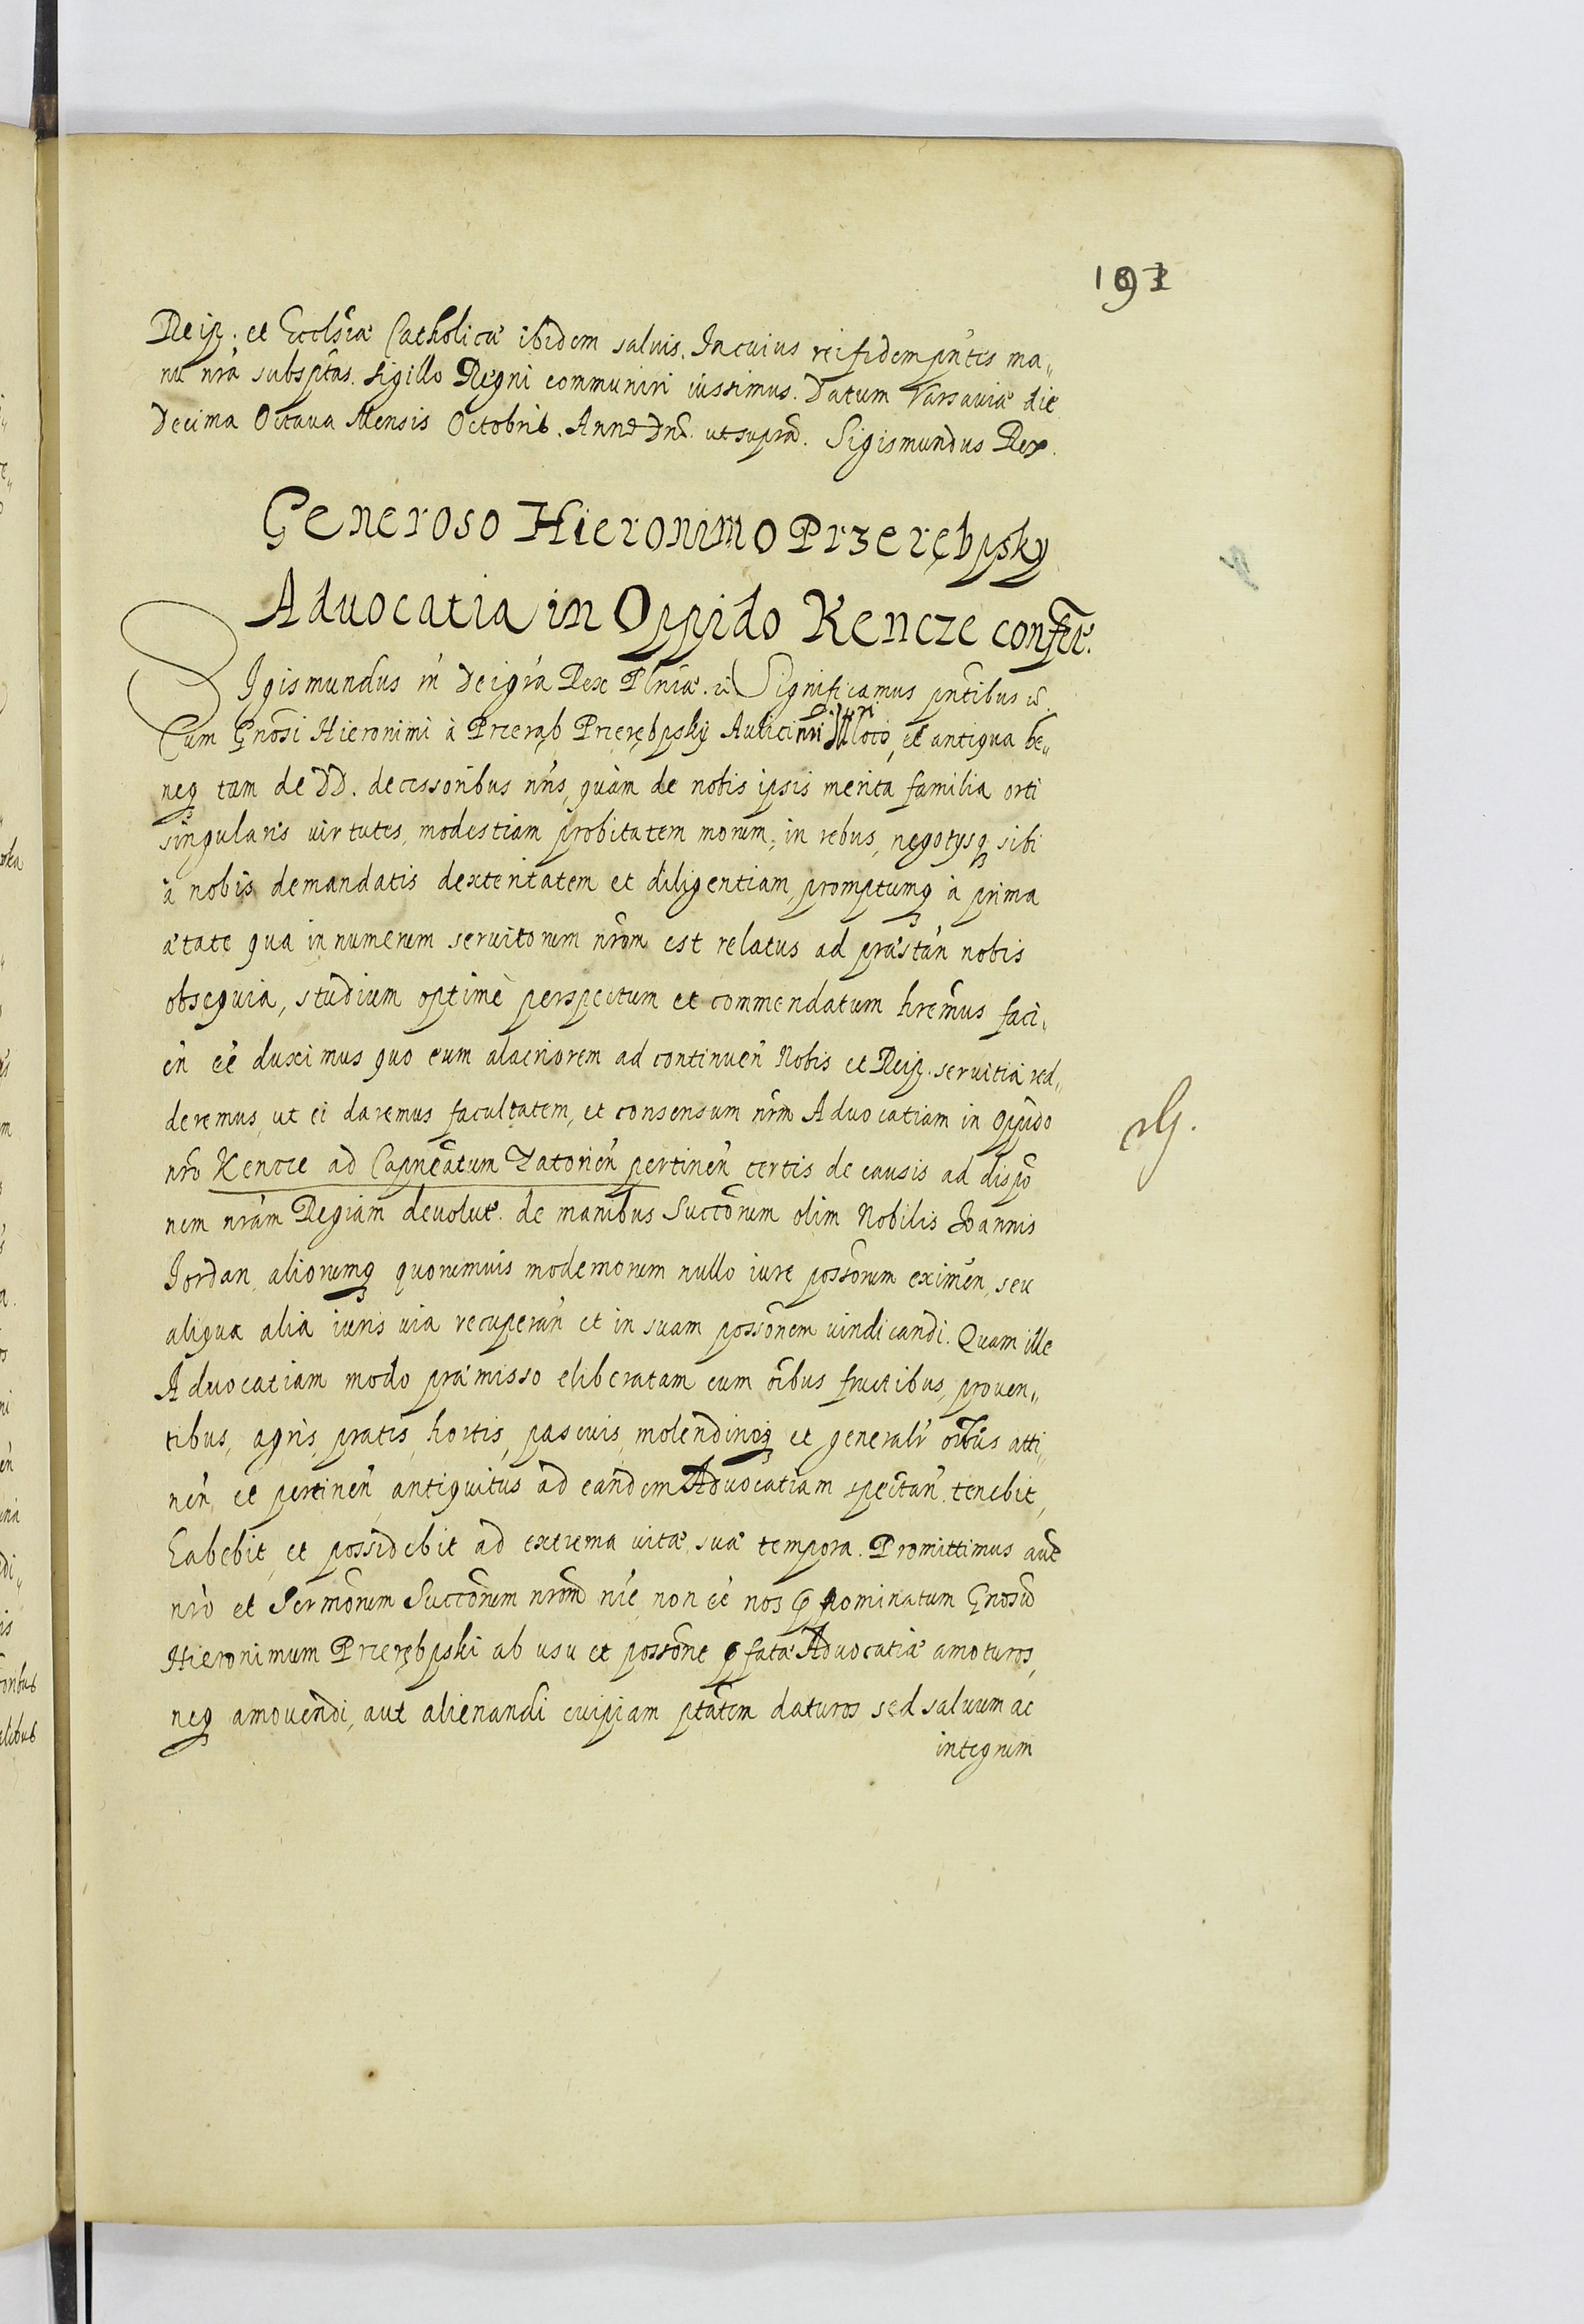 Reip. et Ecclsiæ Catholicæ ibidem saluis. In cuius rei fidem pñtes ma„
nu nrã subsptas. Sigillo Regni communiri iussimus. Datum Varsauiæ die
Decima Octaua Mensis Octobris. Anno Dni. ut supra. Sigismundus Rex.
Generoso Hieronimo Przerębpsky
Aduocatia in Oppido Kencze confer.
Sigismundus iii Dei grã Rex Plniæ. Significamus pntibus
Cum Gnosi Hieronimi à Przerąb Przerębpsky Aulici nri loco, et antiqua be„
neq tam de DD. decessoribus nris, quàm de nobis ipsis merita familia orti
singularis uirtutes, modestiam probitatem morum, in rebus, negotysq sibi
à nobis demandatis dexteritatem et diligentiam, promptumq à prima
ætate qua in numerum seruitorum nrõm est relatus ad præstan nobis
obsequia, studium optimè perspectum et commendatum hremus faci„
en eè duximus quo eum alacriorem ad continuen Nobis et Reip. seruitia red„
deremus, ut ei daremus facultatem, et consensum nrm Aduocatiam in Oppido
nrõ Kencze ad Capneatum Zatorien pertinen certis de causis ad dispo
nem nram Regiam deuolut. de manibus Succorum olim Nobilis Joannis
Jordan, aliorumq quorumuis modernorum nullo iure possorum eximen, seu
aliqua alia iuris uia recuperan et in suam possonem uindicandi. Quam ille
Aduocatiam modo præmisso eliberatam cum oibus fructibus, prouen„
tibus, agris, pratis, hortis, pascuis, molendinoq et generalr oibus atti„
nen, et pertinen antiquitus ad eandem Aduocatiam spectan. tenebit,
habebit, et possidebit ad extrema uitæ suæ tempora. Promittimus aut
nrò et Sermorum Succorum nrom nie non eè nos nominatum Gnosum
Hieronimum Przerębpski ab usu et possone fatæ Aduocatiæ amoturos,
neq amouendi, aut alienandi cuipiam ptatem daturos sed saluum ac
integrum